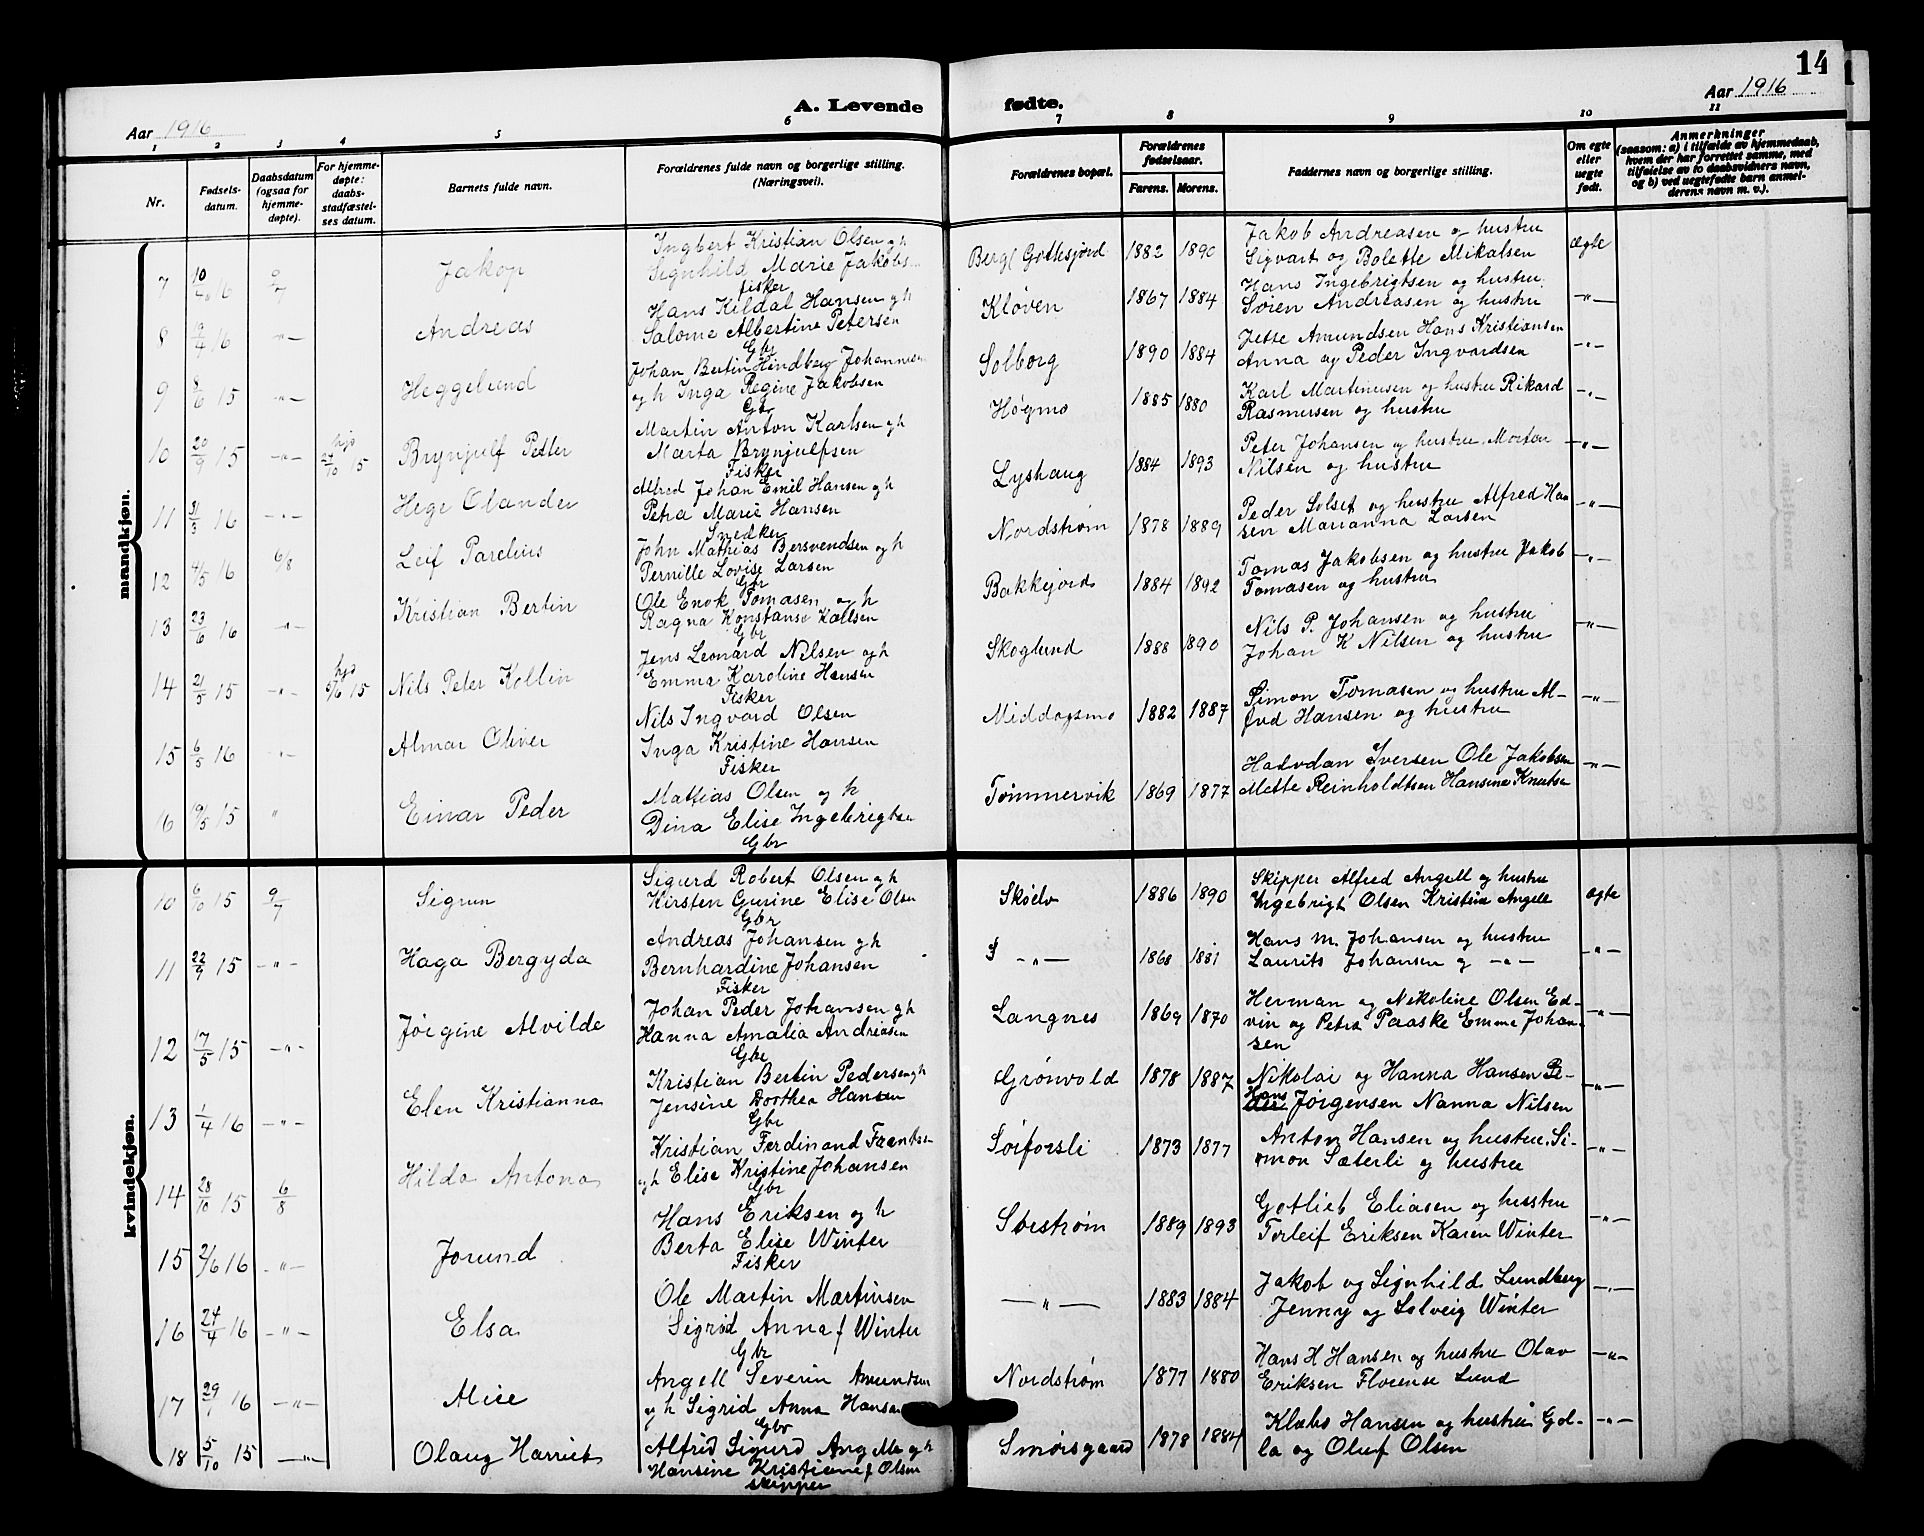 14
A. Levende fødte.
Aar 1916
Aar 1916
1 2 3 4 5 6 7 8 9 10 11
Nr.
Fødsels-
datum.
Daabsdatum
(ogsaa for
hjemme-
døpte).
For hjemme-
døpte:
daabs-
stadfæstel-
ses datum.
Barnets fulde navn.
Forældrenes fulde navn og borgerlige stilling.
(Næringsvei).
Forældrenes bopæl.
Forældrenes
fødselsaar.
Farens. Morens.
Faddernes navn og borgerlige stilling.
Om egte
eller
uegte
født.
Anmerkninger
(saasom: a) i tilfælde av hjemmedaab,
hvem der har forrettet samme, med
tilføielse av to daabsvidners navn,
og b) ved uegtefødt barn anmel-
derens navn m. v.).
mandkjøn.
7 16 9/7 Jakop
Ingbert Kristian Olsen gh
Signhild Marie Jakobs
fisker
1882 1890
Jakob Andreasen og hustru
Sigvart og Bolette Mikalsen
ægte
8 16 -"- Andreas
Hans Kildal Hansen gh
Salome Albertine Petersen
Gbr
Kløven 1867 1884
Hans Ingebrigtsen og hustru
Søren Andreasen og hustru
-"-
9 8/6 15 -"- Heggelund
Johan Bertin Hindberg Johannesen
og h Inga Regine Jakobsen
Gbr
Solborg 1890 1884
Jette Amundsen Hans Kristiansen
Anna og Peder Ingvardsen
-"-
10 20/9 15 -"- hjd 24/10 15 Brynjulf Petter
Martin Anton Karlsen gh
Marta Brynjulfsen
Fisker
Høgmo 1885 1880
Karl Martinusen og hustru Rikard
Rasmusen og hustru
-"-
11 31/3 16 -"- Hege Olander
Alfred Johan Emil Hansen gh
Petra Marie Hansen
Snedker
Lyshaug 1884 1893
Peter Johansen og hustru Morten
Nilsen og hustru
-"-
12 4/5 16 6/8 Leif Parelius
John Mathias Bersvendsen og h
Pernille Lovise Larsen
Gbr
Nordstrøm 1878 1889
Peder Solset og hustru Alfred Han
sen Marianna Larsen
-"-
13 23/6 16 -"- Kristian Bertin
Ole Enok Tomasen og h
Ragna Konstanse Karlsen
Gbr
Bakkejord 1884 1892
Tomas Jakobsen og hustru Jakob
Tomasen og hustru
-"-
14 21/5 15 -"- hjd 5/6 15 Nils Peter Kollin
Jens Leonard Nilsen og h
Emma Karoline Hansen
Fisker
Skoglund 1888 1890
Nils P. Johansen og hustru
Johan K Nilsen og hustru
-"-
15 6/5 16 -"- Almar Oliver
Nils Ingvard Olsen
Inga Kristine Hansen
Fisker
Middagsmo 1882 1887
Simon Tomasen og hustru Al-
fred Hansen og hustru
-"-
16 15 " Einar Peder
Mathias Olsen og h
Dina Elise Ingebrigtsen
Gbr
Tømmervik 1869 1877
Halvdan Iversen Ole Jakobsen
Mette Reinholdtsen Hansine Knutsen
-"-
kvindekjøn.
10 6/10 15 9/7 Sigrun
Sigurd Robert Olsen gh
Kirsten Gurine Elise Olsen
Gbr
Skøelv 1886 1890
Skipper Alfred Angell og hustru
Ingebrigt Olsen Kristina Angell
ægte
11 22/9 15 -"- Haga Bergyda
Andreas Johansen gh
Bernhardine Johansen
Fisker
-"- 1868 1881
Hans M. Johansen og hustru
Laurits Johansen og -"-
-"-
12 17/5 15 -"- Jørgine Alvilde
Johan Peder Johansen gh
Hanna Amalia Andreasen
Gbr
Langnes 1869 1870
Herman og Nikoline Olsen Ed-
vin og Petra Paaske Emma Johan-
sen
-"-
13 1/4 16 -"- Elen Kristianna
Kristian Bertin Pedersen gh
Jensine Dorthea Hansen
Gbr
Grønvold 1878 1887
Nikolai og Hanna Hansen Pe-
der Hans Jørgensen Nanna Nilsen
-"-
14 28/10 15 6/8 Hilda Antona
Kristian Ferdinand Frantsen
gh Elise Kristine Johansen
Gbr
Sørforsli 1873 1877
Anton Hansen og hustru Si-
mon Sæterli og hustru
-"-
15 2/6 16 -"- Jorund
Hans Eriksen og h
Berta Elise Winter
Fisker
1889 1893
Gotlieb Eliasen og hustru
Torleif Eriksen Karen Winter
-"-
16 24/4 16 -"- Elsa
Ole Martin Martinsen
Sigrid Anna f Winter
Gbr
-"- 1883 1884
Jakob og Signhild Lundberg
Jenny og Solveig Winter
-"-
17 29/1 16 -"- Alise
Angell Severin Amundsen
og h Sigrid Anna Hansen
Gbr
Nordstrøm 1877 1880
Hans H Hansen og hustru Olav
Eriksen Florense Lund
-"-
18 5/10 15 -"- Olaug Harriet
Alfred Sigurd Angell og h
Hansine Kristiane f Olsen
skipper
Smørsgaard 1878 1884
Klæbo Hansen og hustru Gol-
la og Oluf Olsen
-"-